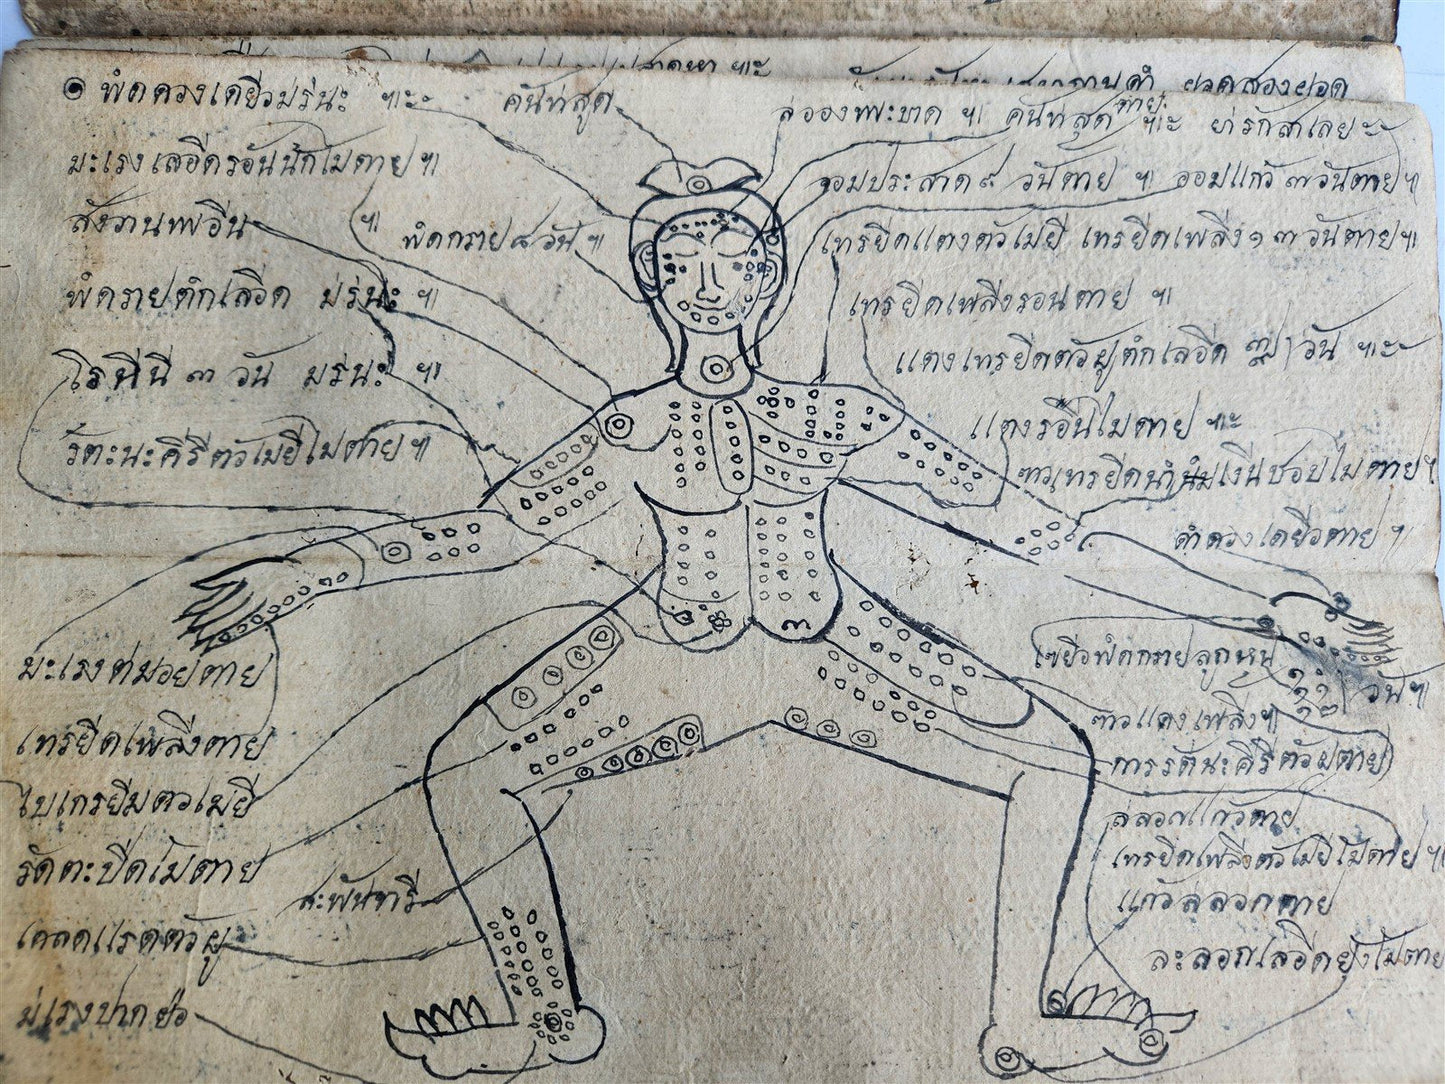 ๏ พิดดวงเดยีวมรณะ ฯะ
คันทสูด
ล่อองพระบาด ฯ คันทสุด ตาย ฯะ ยารักสาเลยะ
มะเรงเลอีดรอันนักไมตาย ฯ
จอมประสาด ๙ วันตาย ฯ ออมแกว ๓ วันตาย ฯ
สังวานพอีน
ฯ พิดกราย ๘ วัน ฯ
เทรยีดแดงตัวเมยี เทรยีดเพลีง ๑๓ วันตาย ฯ
พิดรายตกเลอีด มรนะ ฯ
เทรยีดเพลีงรอนตาย ฯ
โรหีนี ๓ วัน มรนะ ฯ
แดงเทรยีดตัวผูตกเลอีด วัน ฯะ
รัตะนะคีรีตัวเมยีไมตาย ฯ
แดงรอีนไมตาย ฯะ
ฃาวเทรยีดนำ เงีนชอบไมตาย ฯ
ดำดวงเดยีวตาย ฯ
มะเรงตมอยตาย
พิดกรายลูกหนู วัน ฯ
เทรยีดเพลีงตาย
ฃาวแดงเพลีง ฯ
ไบเกรยีมตัวเมยี
การรัตนะคีรีตัวผูตาย
รัดตะปีดไมตาย
แกวตาย
สะพันทารี
เทรยีดเพลีงตัวเมยีไมตาย ฯ
เคลดแรดตัวผู
แกวลลอกตาย
ละลอกเลอีดยุงไมตาย
มเรงปากยอ